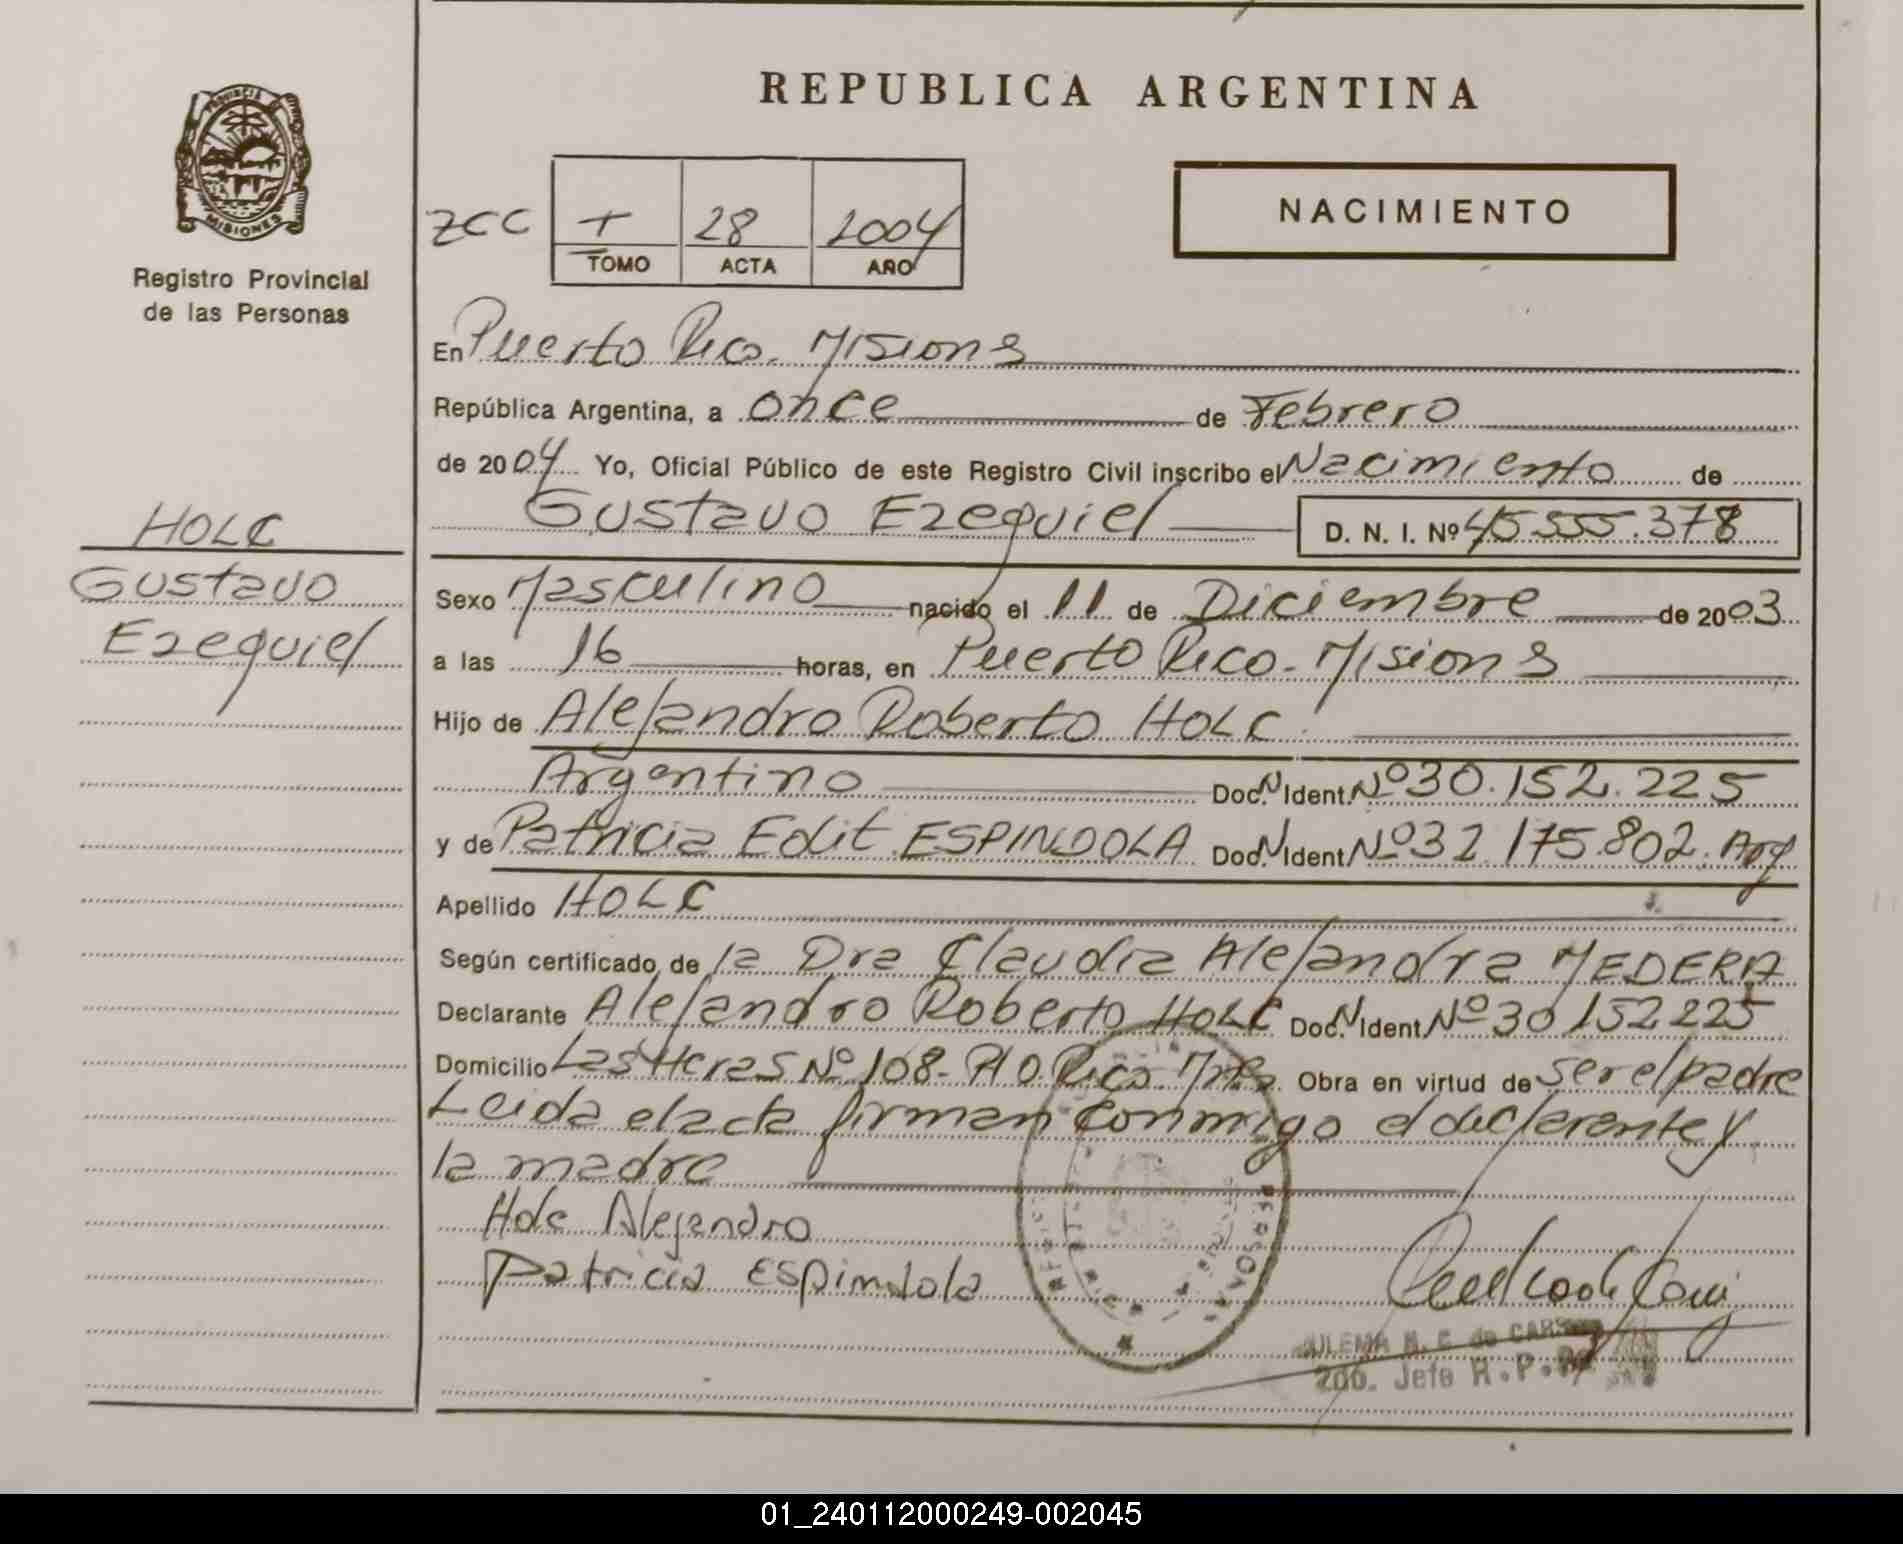 REPUBLICA ARGENTINA
PROVINCIA DE
MISIONES
Registro Provincial
de las Personas
ZCC
28 2004
TOMO ACTA AÑO
NACIMIENTO
En Puerto Rico. Misiones
República Argentina, a once de Febrero
de 2004 Yo, Oficial Público de este Registro Civil inscribo el Nacimiento de
Gustavo Ezequiel D. N. I. Nº 45 555.378
HOLC
Gustavo
Ezequiel
Sexo Masculino nacido el 11 de Diciembre de 2003
a las 16 horas, en Puerto Rico - Misiones
Hijo de Alejandro Roberto HOLC
Argentino Doc. N Ident. Nº 30.152.225
y de Patricia Edit ESPINDOLA Doc. N Ident. Nº 32.175.802. Arg
Apellido HOLC
Según certificado de la Dra Claudia Alejandra MEDERA
Declarante Alejandro Roberto HOLC Doc. N Ident. Nº 30 152 225
Domicilio Las Heras Nº 108 - Pto Rico. Mnes. Obra en virtud de ser el padre
Leida el acta firman conmigo el declarante y
la madre
Holc Alejandro
Patricia Espindola
2do. Jefe R.P.
01_240112000249-002045